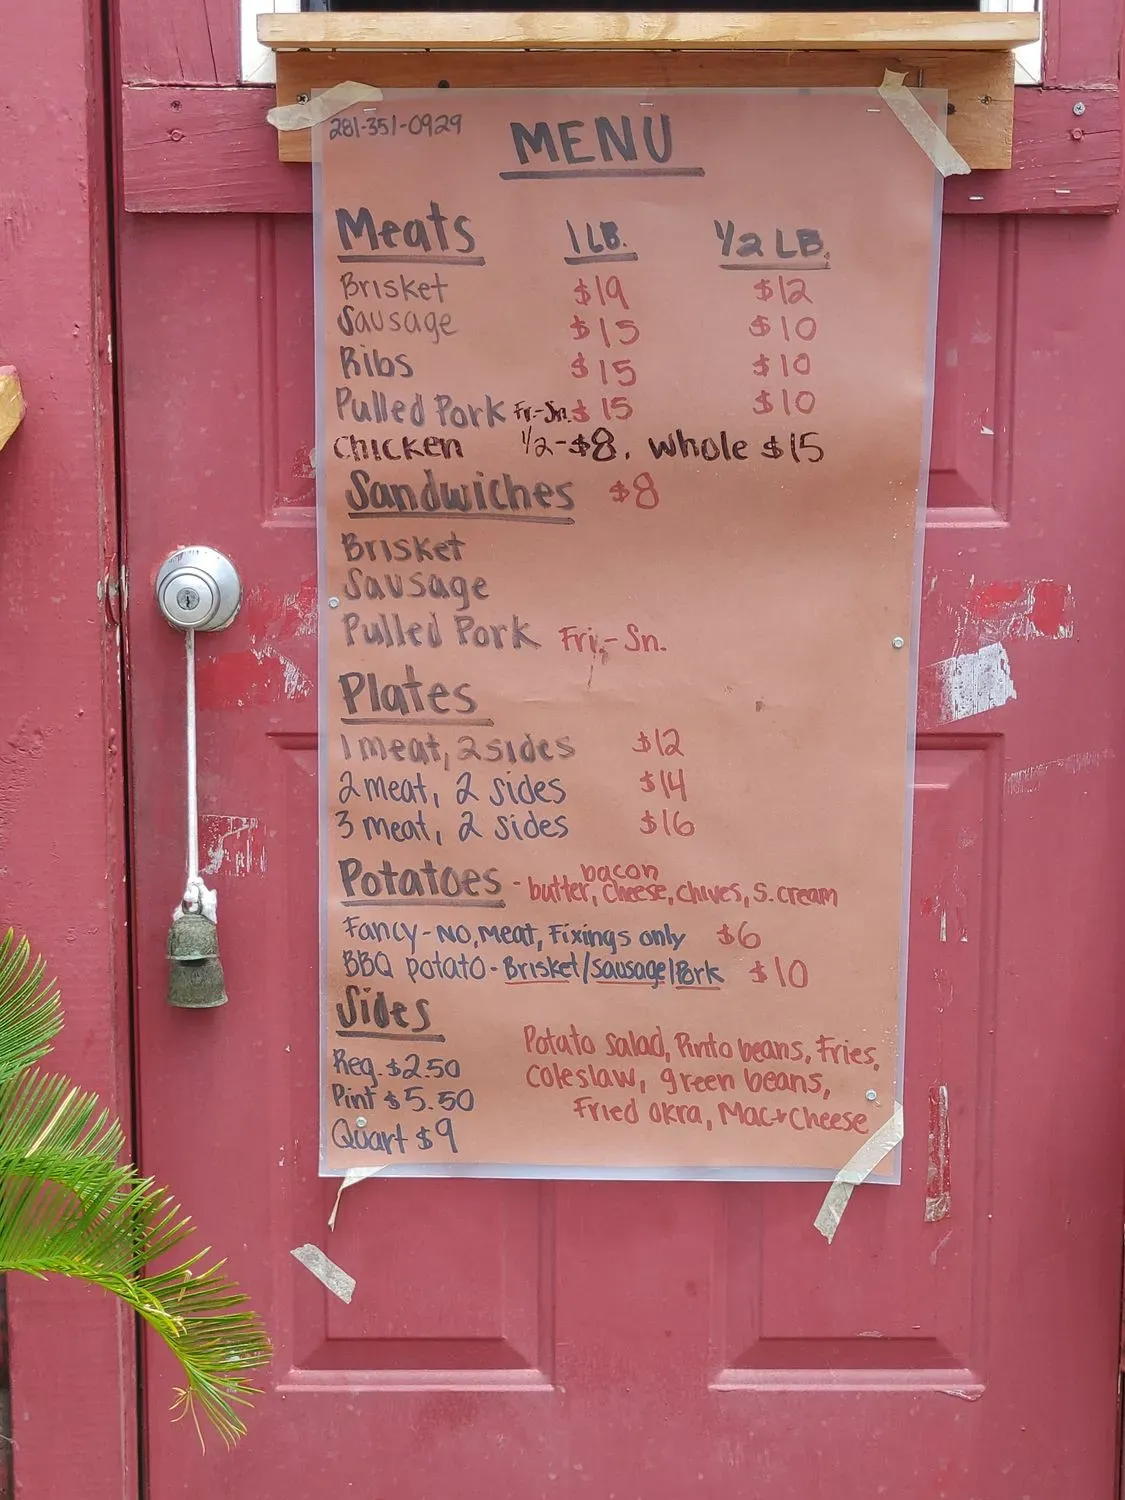 281-351-0929
MENU
Meats 1 LB. 1/2 LB.
Brisket $19 $12
Sausage $15 $10
Ribs $15 $10
Pulled Pork Fr.-Sn. $15 $10
Chicken 1/2-$8, whole $15
Sandwiches $8
Brisket
Sausage
Pulled Pork Fri.-Sn.
Plates
1 meat, 2 sides $12
2 meat, 2 sides $14
3 meat, 2 sides $16
bacon
Potatoes - butter, cheese, chives, s. cream
Fancy-NO, Meat, Fixings only $6
BBQ potato-Brisket/Sausage/Pork $10
Sides
Reg. $2.50
Pint $5.50
Quart $9
Potato Salad, Pinto beans, Fries,
Coleslaw, green beans,
Fried okra, Mac+Cheese